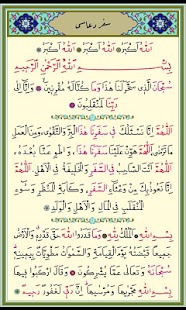 سفر دعاسی
اَللهُ اَكْبَرُ ۞ اَللهُ اَكْبَرُ ۞ اَللهُ اَكْبَرُ
بِسْمِ اللهِ الرَّحْمٰنِ الرَّحِيمِ
سُبْحَانَ الَّذِي سَخَّرَ لَنَا هٰذَا وَمَا كُنَّا لَهُ مُقْرِنِينَ ۞ وَاِنَّا اِلٰى
رَبِّنَا لَمُنْقَلِبُونَ
اَللّٰهُمَّ اِنَّا نَسْئَلُكَ فِي سَفَرِنَا هٰذَا الْبِرَّ وَالتَّقْوٰى وَمِنَ الْعَمَلِ
مَا تَرْضٰى اَللّٰهُمَّ هَوِّنْ عَلَيْنَا سَفَرَنَا هٰذَا وَاطْوِ عَنَّا بُعْدَهُ
اَللّٰهُمَّ اَنْتَ الصَّاحِبُ فِي السَّفَرِ وَالْخَلِيفَةُ فِي الْاَهْلِ اَللّٰهُمَّ
اِنَّا نَعُوذُ بِكَ مِنْ وَعْثَاءِ السَّفَرِ وَكَآبَةِ الْمَنْظَرِ وَسُوءِ
الْمُنْقَلَبِ فِي الْمَالِ وَالْاَهْلِ
بِسْمِ اللهِ وَمَا قَدَرُوا اللهَ حَقَّ قَدْرِهِ وَالْاَرْضُ
جَمِيعًا قَبْضَتُهُ يَوْمَ الْقِيَامَةِ وَالسَّمٰوَاتُ مَطْوِيَّاتٌ بِيَمِينِهِ
سُبْحَانَهُ وَتَعَالٰى عَمَّا يُشْرِكُونَ ۞ وَقَالَ ارْكَبُوا فِيهَا
بِسْمِ اللهِ مَجْرٰيهَا وَمُرْسٰيهَا اِنَّ رَبِّي لَغَفُورٌ رَحِيمٌ